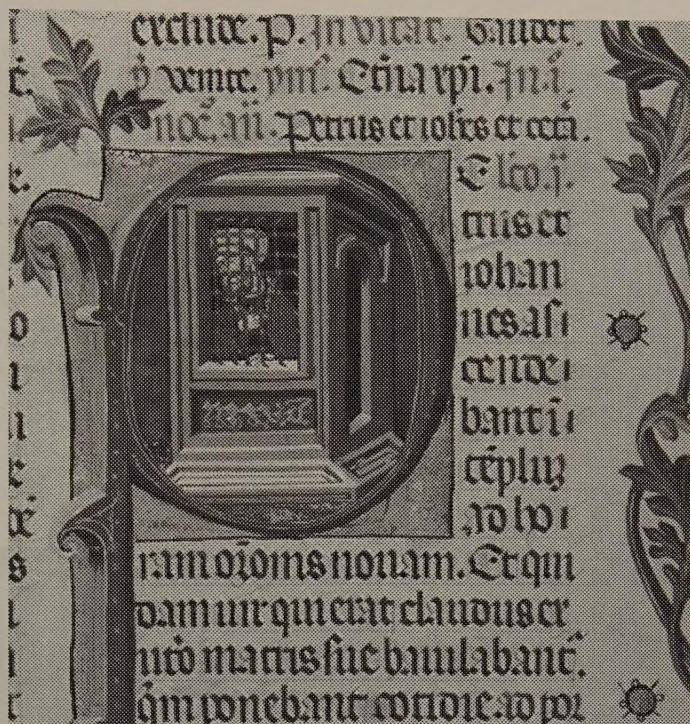 exclude. P. Invitat. Gaudet.
venite. ymſ. Et na xpi. In. i.
noc̄. añ. Petrus et ioħes et cetā.
Lc̄o. ij.
trus et
iohan
nes aſ
cende
bant ī
tēpluꝫ
ad ho
ram or̄onis nonam. Et qui
dam uir qui erat claudus ex
uto matris ſue baiulabant᷑.
q̄m ponebant cotidie ad por